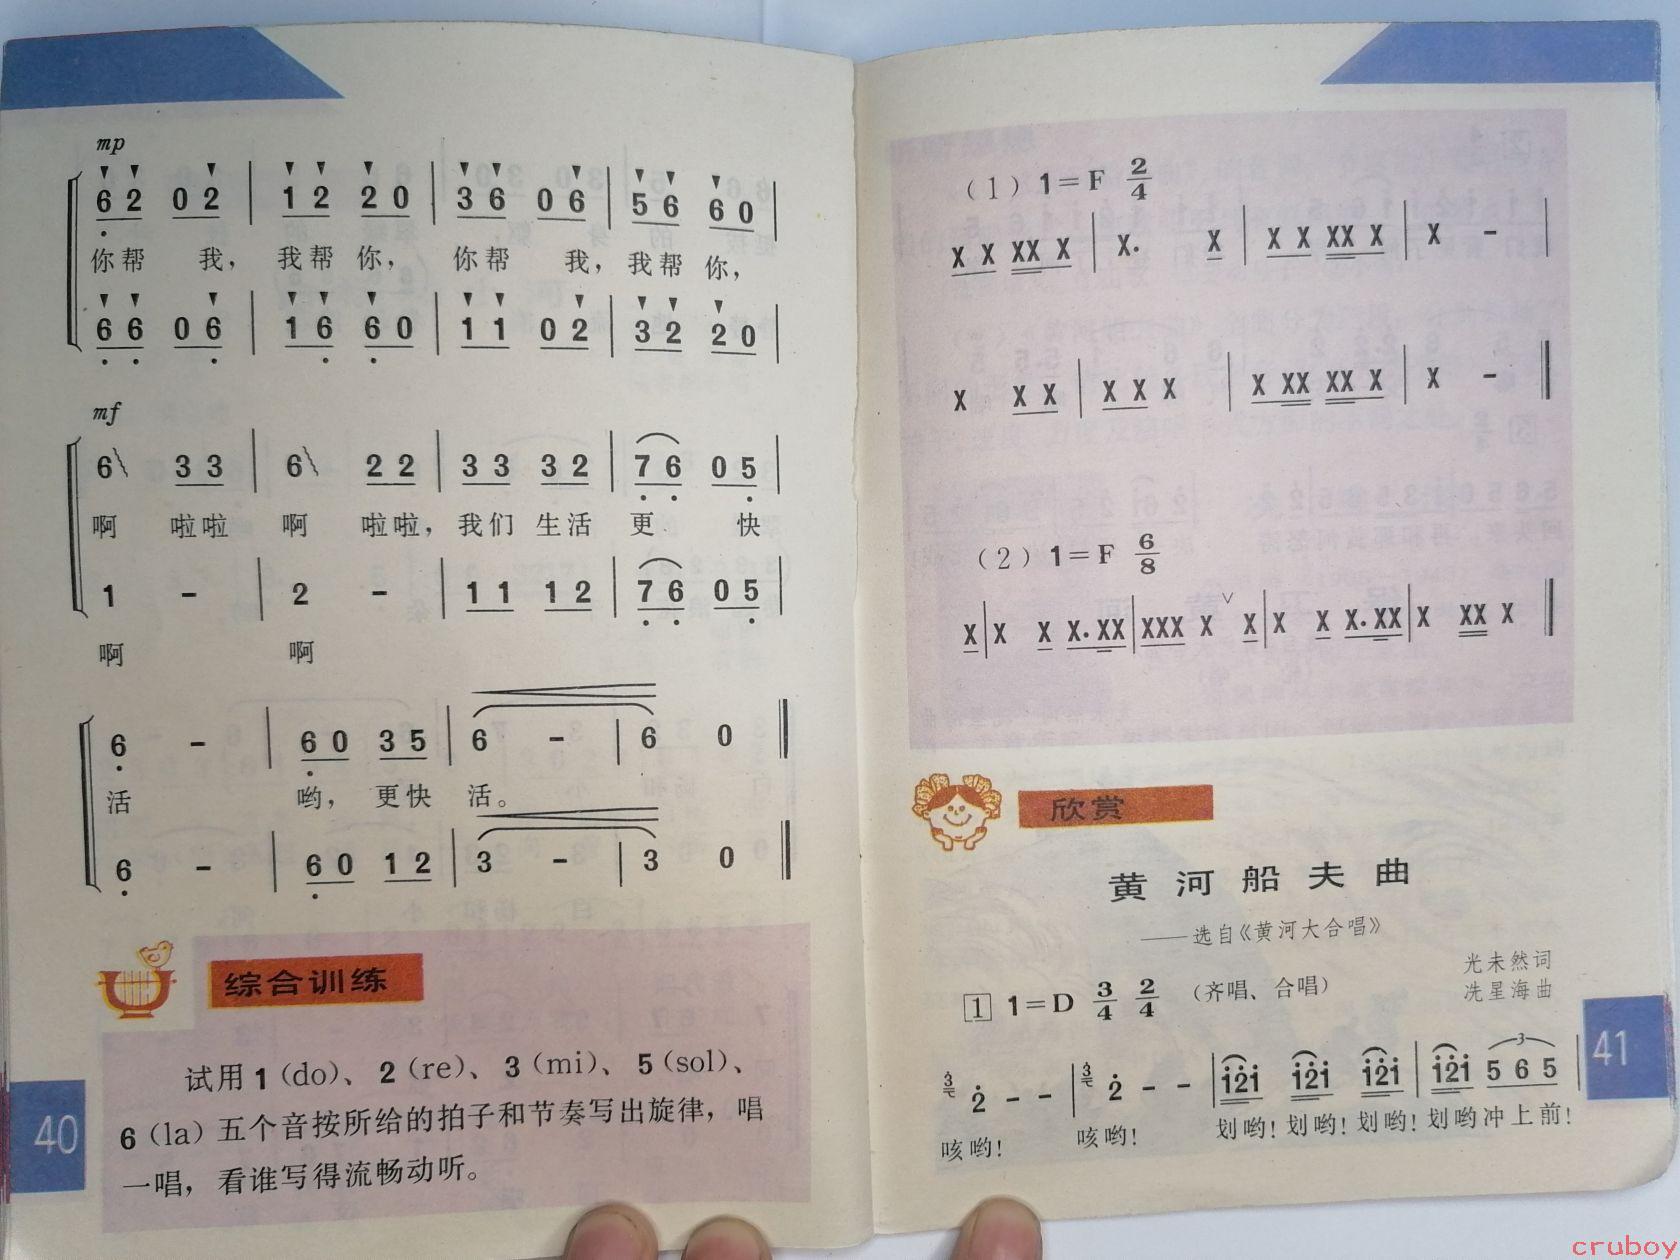 mp
6 2 0 2 | 1 2 2 0 | 3 6 0 6 | 5 6 6 0 |
你帮 我， 我帮 你， 你帮 我， 我帮 你，
6 6 0 6 | 1 6 6 0 | 1 1 0 2 | 3 2 2 0 |
mf
6 3 3 | 6 2 2 | 3 3 3 2 | 7 6 0 5 |
啊 啦啦 啊 啦啦， 我们 生活 更 快
1 - | 2 - | 1 1 1 2 | 7 6 0 5 |
啊 啊
6 - | 6 0 3 5 | 6 - | 6 0 ‖
活 哟， 更快 活。
6 - | 6 0 1 2 | 3 - | 3 0 ‖
综合训练
试用1（do）、2（re）、3（mi）、5（sol）、
6（la）五个音按所给的拍子和节奏写出旋律，唱
一唱，看谁写得流畅动听。
40
（1）1=F 2/4
X X XX X | X. X | X X XX X | X - |
X X X | X X X | X XX XX X | X - ‖
（2）1=F 6/8
X | X X X. XX | XXX X ∨ X | X X X. XX | X XX X ‖
欣赏
黄河船夫曲
——选自《黄河大合唱》
光未然词
冼星海曲
1 1=D 3/4 2/4 （齐唱、合唱）
3 2 - - | 3 2 - - | 121 121 121 | 121 3 5 6 5 |
咳哟！ 咳哟！ 划哟！划哟！划哟！划哟冲上前！
41
cruboy